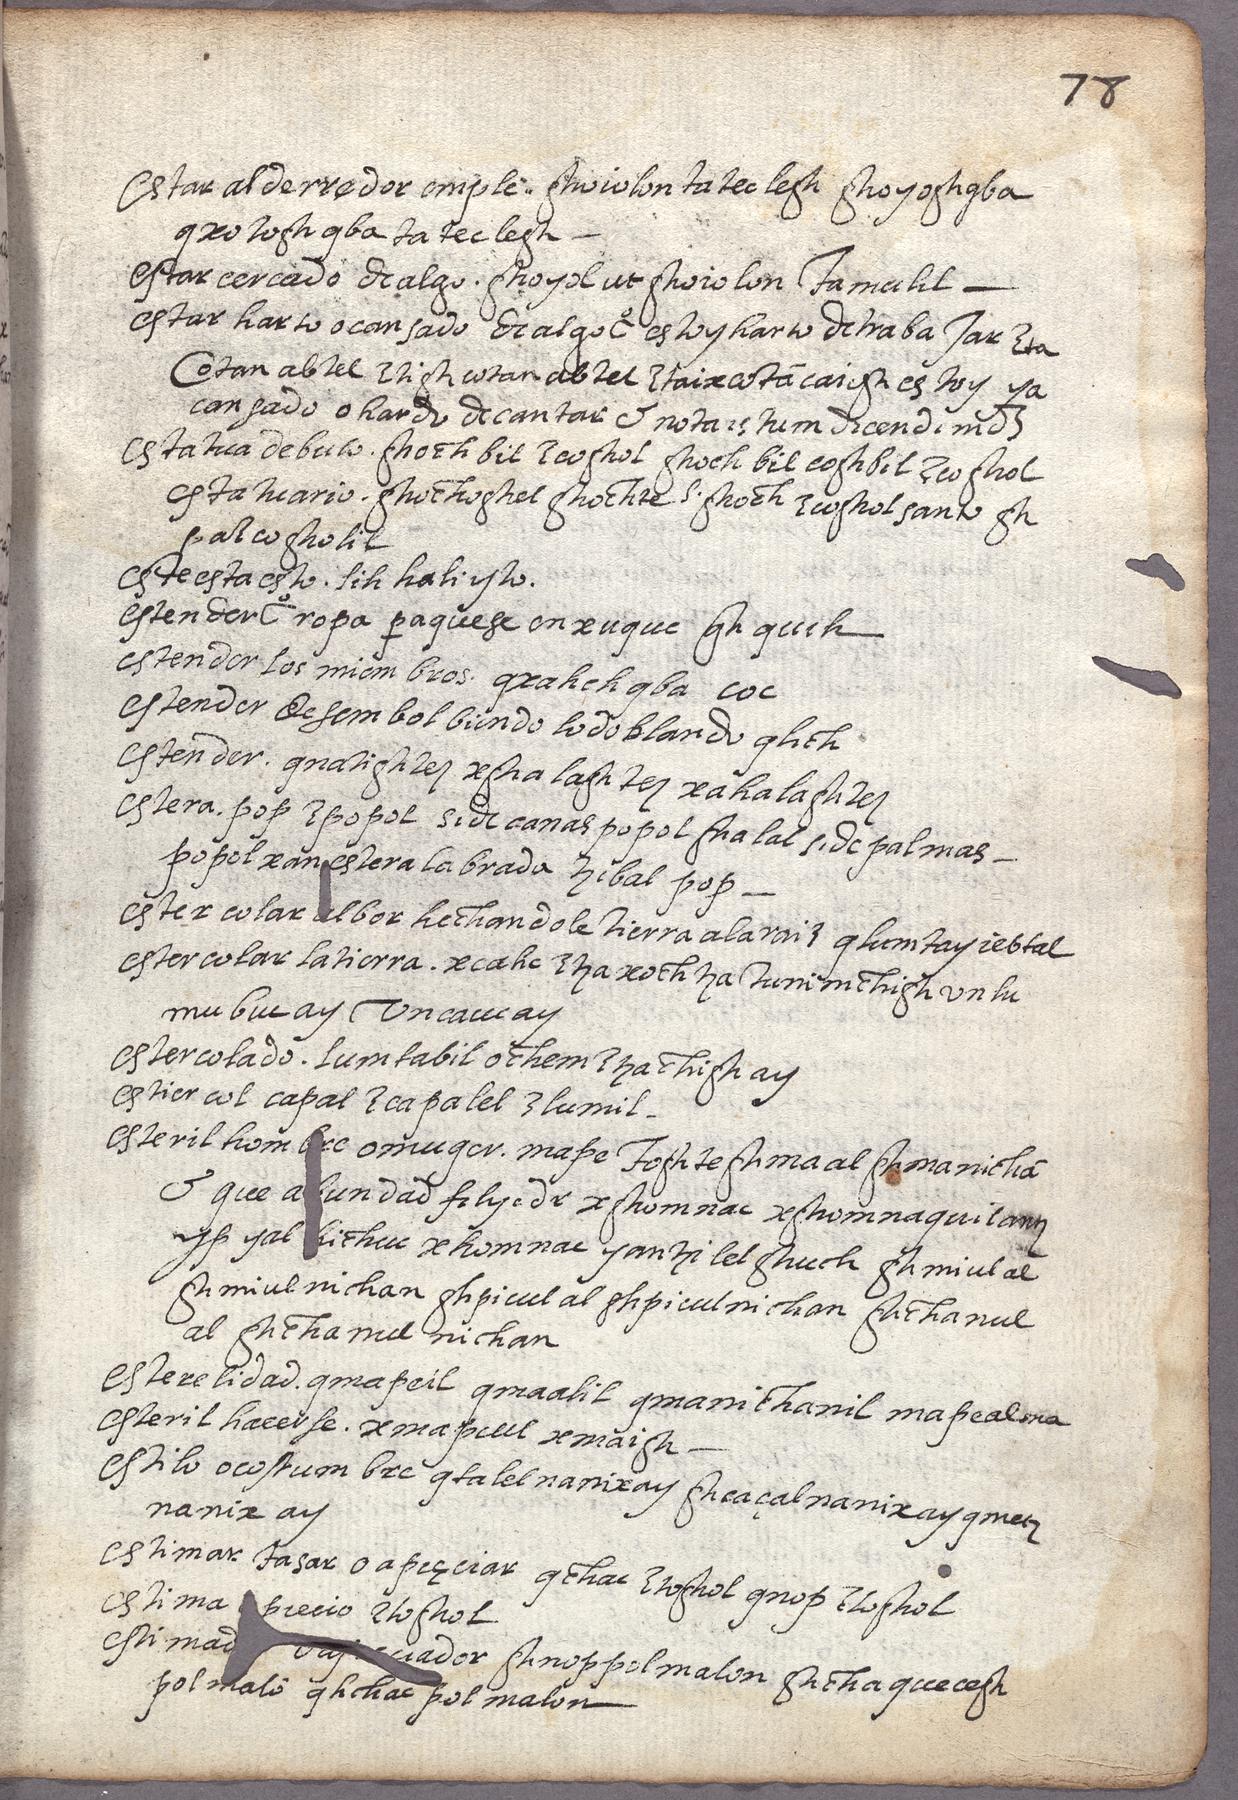 78
Estar al derredor emple. ghoiolon ta teclegh ghoyoghqba
qxotoghqba ta teclegh
Estar cercado de algo. ghoyol ut ghoiolon Tamulil
estar harto o cansado de algo estoy harto de trabajar
Cotan abtel cotan abtel estoy ya
cansado o harto de cantar
Estatua de bulto. ghochbil ꜫcoghol ghochbil coghbil ꜫcoghol
estatuario. ghochoghel ghochte l. ghoch ꜫcoghol santo gh
palcogholil
este esta esto. lih hali yto.
estender ropa paque se enxugue gh quih
estender los miembros. qxahchqba coc
estender desembolbiendo lo doblando qlich
estender. qnatightez xghalaghtez xahalaghtez
estera. pop ꜫpopol s. de canas popol ghalal s. de palmas
popol xan estera labrada tzibal pop
estercolar albor hechandole tierra a la raiz qlumtay iebtal
estercolar la tierra. xcahc unlu
mubucay Uncauay
estercolado. lumtabil ochem ꜫtzachigh ay
estiercol capal ꜫcapalel ꜫlumil
esteril hombre o muger. mape Toghte ghmaal ghmanichā
que abundad xghomnac xghomnaquil
yp yal kichuc xhomnac yantzilel ghuch ghmiulal
ghmiulnichan ghpiculal ghpiculnichan ghchanul
al ghchanul nichan
esterelidad. qmapeil qmaalil qmanichanil mapealma
esteril hacerse. xmapeul xmaigh
estilo o costumbre qtalelnanixay ghcaçalnanixay qmelz
nanixay
estimar tasar o apreciar qchac ꜫtoghol qnop ꜫtoghol
estima precio ꜫtoghol
estimad ador ghnoppolmalon ghchaquecegh
polmalō qhchac polmalon